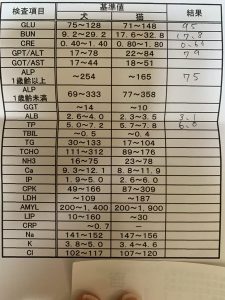 検査項目 基準値 結果
犬 猫
GLU 75~128 71~148 95
BUN 9.2~29.2 17.6~32.8 17.8
CRE 0.40~1.40 0.80~1.80
GPT/ALT 17~78 22~84 79
GOT/AST 17~44 18~51
ALP 1歳齢以上 ~254 ~165 75
ALP 1歳齢未満 69~333 77~358
GGT ~14 ~10
ALB 2.6~4.0 2.3~3.5 3.1
TP 5.0~7.2 5.7~7.8 6.0
TBIL ~0.5 ~0.4
TG 30~133 17~104
TCHO 111~312 89~176
NH3 16~75 23~78
Ca 9.3~12.1 8.8~11.9
IP 1.9~5.0 2.6~6.0
CPK 49~166 87~309
LDH ~109 ~187
AMYL 200~1,400 200~1,900
LIP 10~160 ~30
CRP ~0.7 -
Na 141~152 147~156
K 3.8~5.0 3.4~4.6
Cl 102~117 107~120